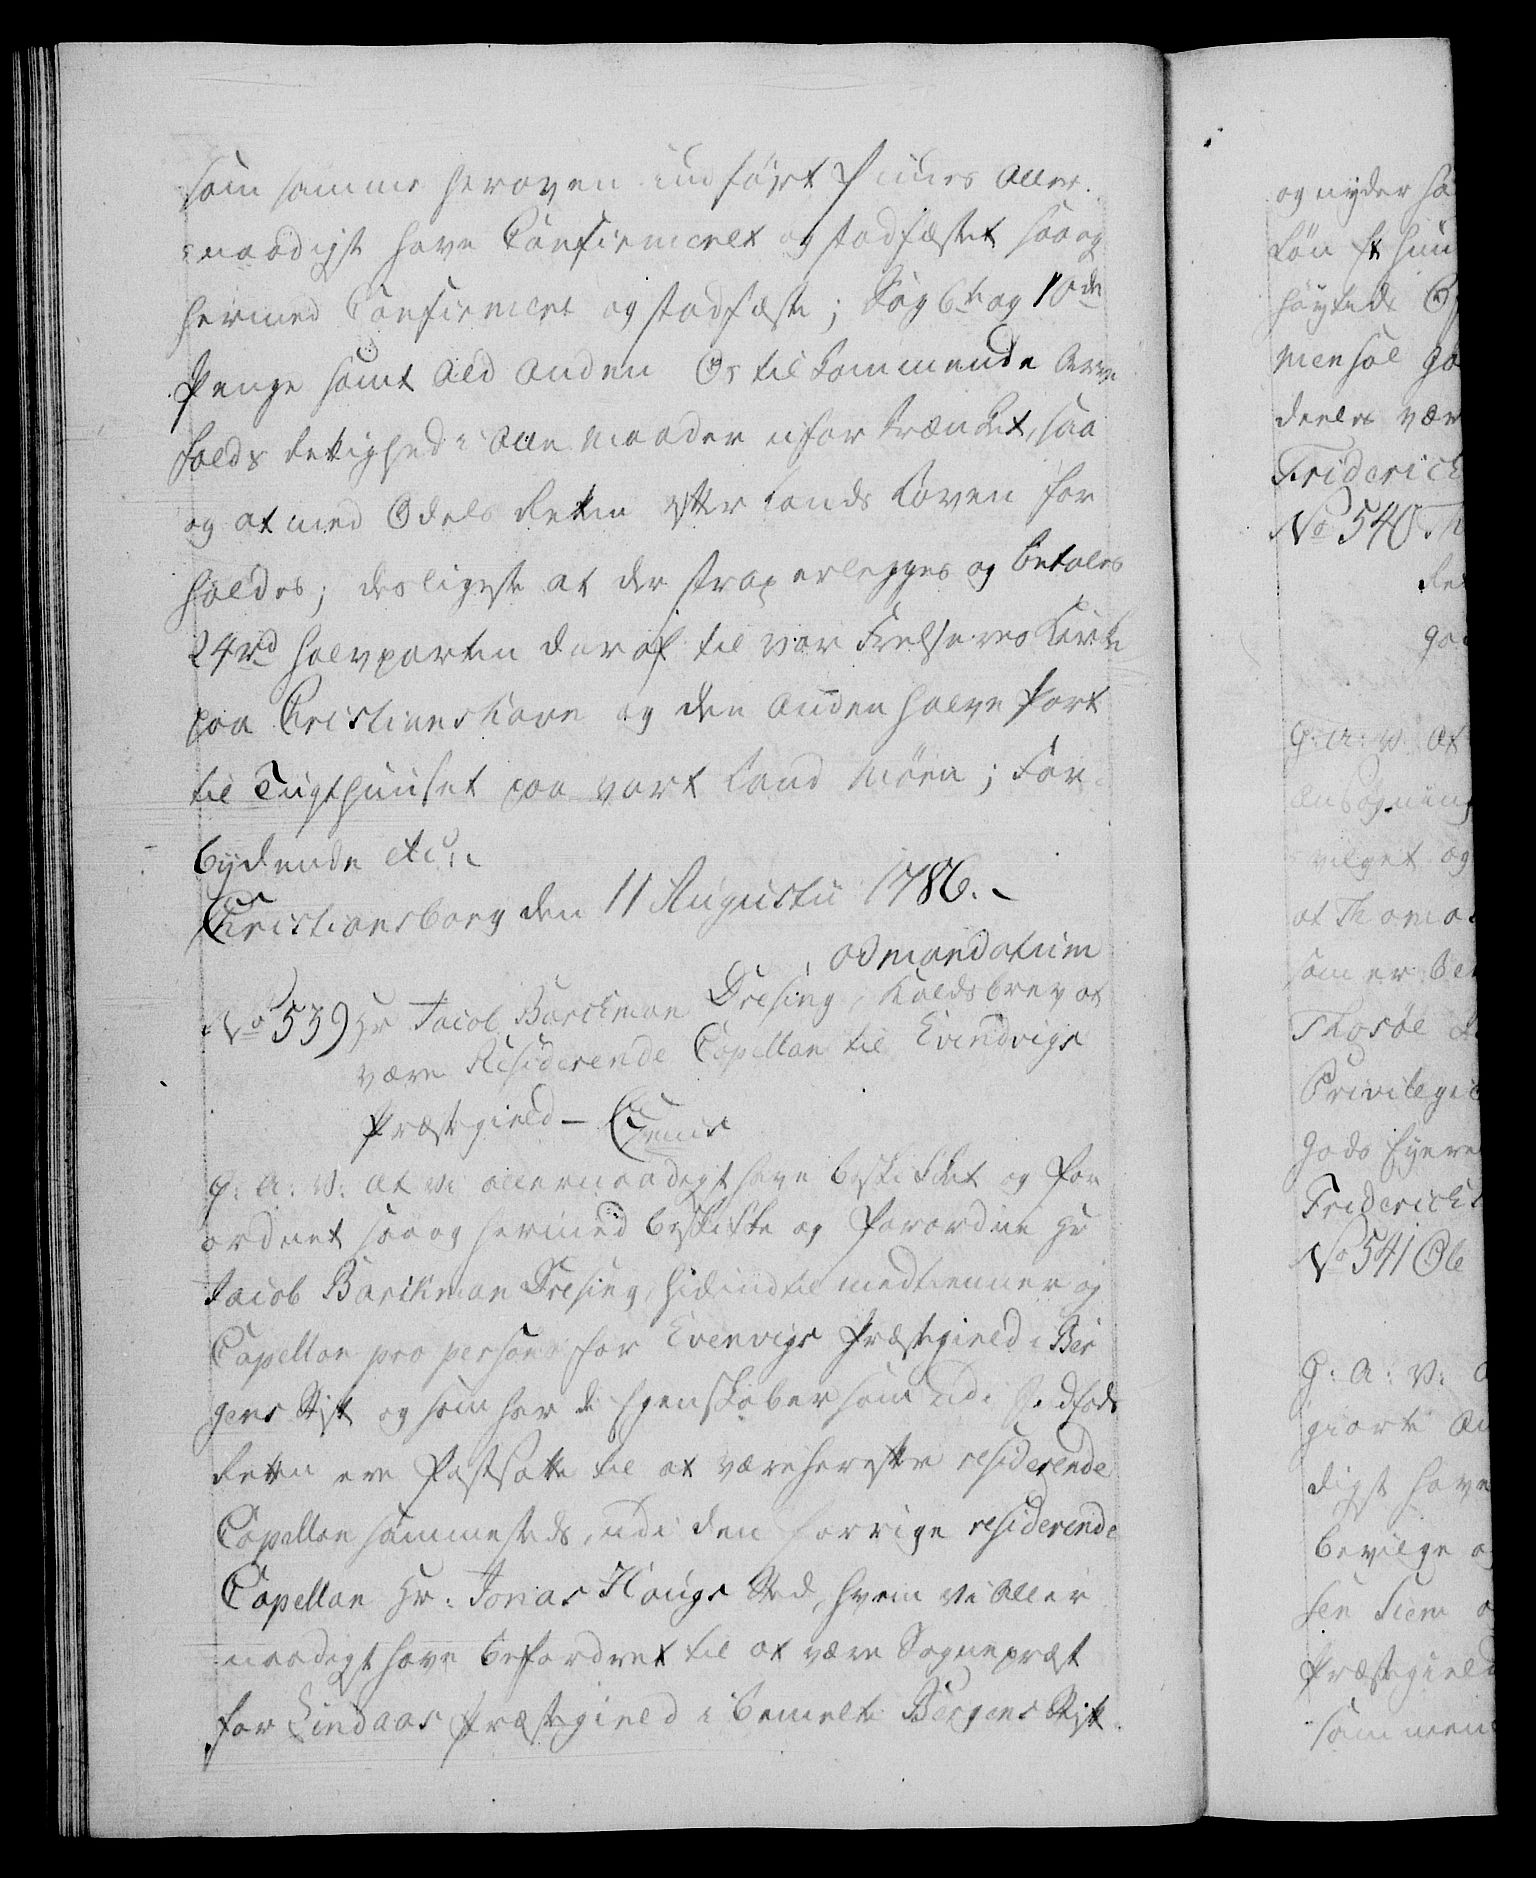 som samme heroven indført findes Aller-
naadigst have Confirmeret og stadfæstet saa og
hermed Confirmere og stadfæste; Dog 6te og 10de
Penge samt Ald Anden Os tilkommende Arve
falds Rettighed i Alle Maader ufor krænket, saa
og at med Odels Retten efter Lands Loven for
holdes; desligeste at der strax erlegges og betales
24 rd halvparten deraf til Vor Frelseres Kirke
paa Christianshavn og den Anden halve Part
til Tugthuuset paa vort Land Møen; For-
bydende etc:
Christiansborg den 11 Augusti 1786.
ad mandatum
No 539 Hr Jacob Barckman Dresing, Kaldsbrev at
være Residerende Capellan til Evindvigs
Præstegield — Gratis
G: A: V: At Vi allernaadigst have beskikket og for
ordnet saa og hermed beskikke og forordne Hr
Jacob Barckman Dresing, hidindtil medtienner og
Capellan pro persona for Evenvigs Præstegield i Ber
gens Stift og som har de Egenskaber som udi
Retten ere Fastsatte til at være herefter residerende
Capellan sammesteds, udi den forrige residerende
Capellan Hr: Jonas Haugs Sted, hvem Vi Aller
naadigst have befordret til at være Sognepræst
for Lindaas Præstegield i bemelte Bergens Stift.
og nyder sa
høytids
Mensal
deeles vær
Friderich
No 540 Th
G: A: V: At
ansøgning
vilget og
at Thomas
som er
Privilegi
Gods Eyere
Friderich
No 541 Ole
G: A: V:
giorte
digst have
bevilge
Præstegield
sammen